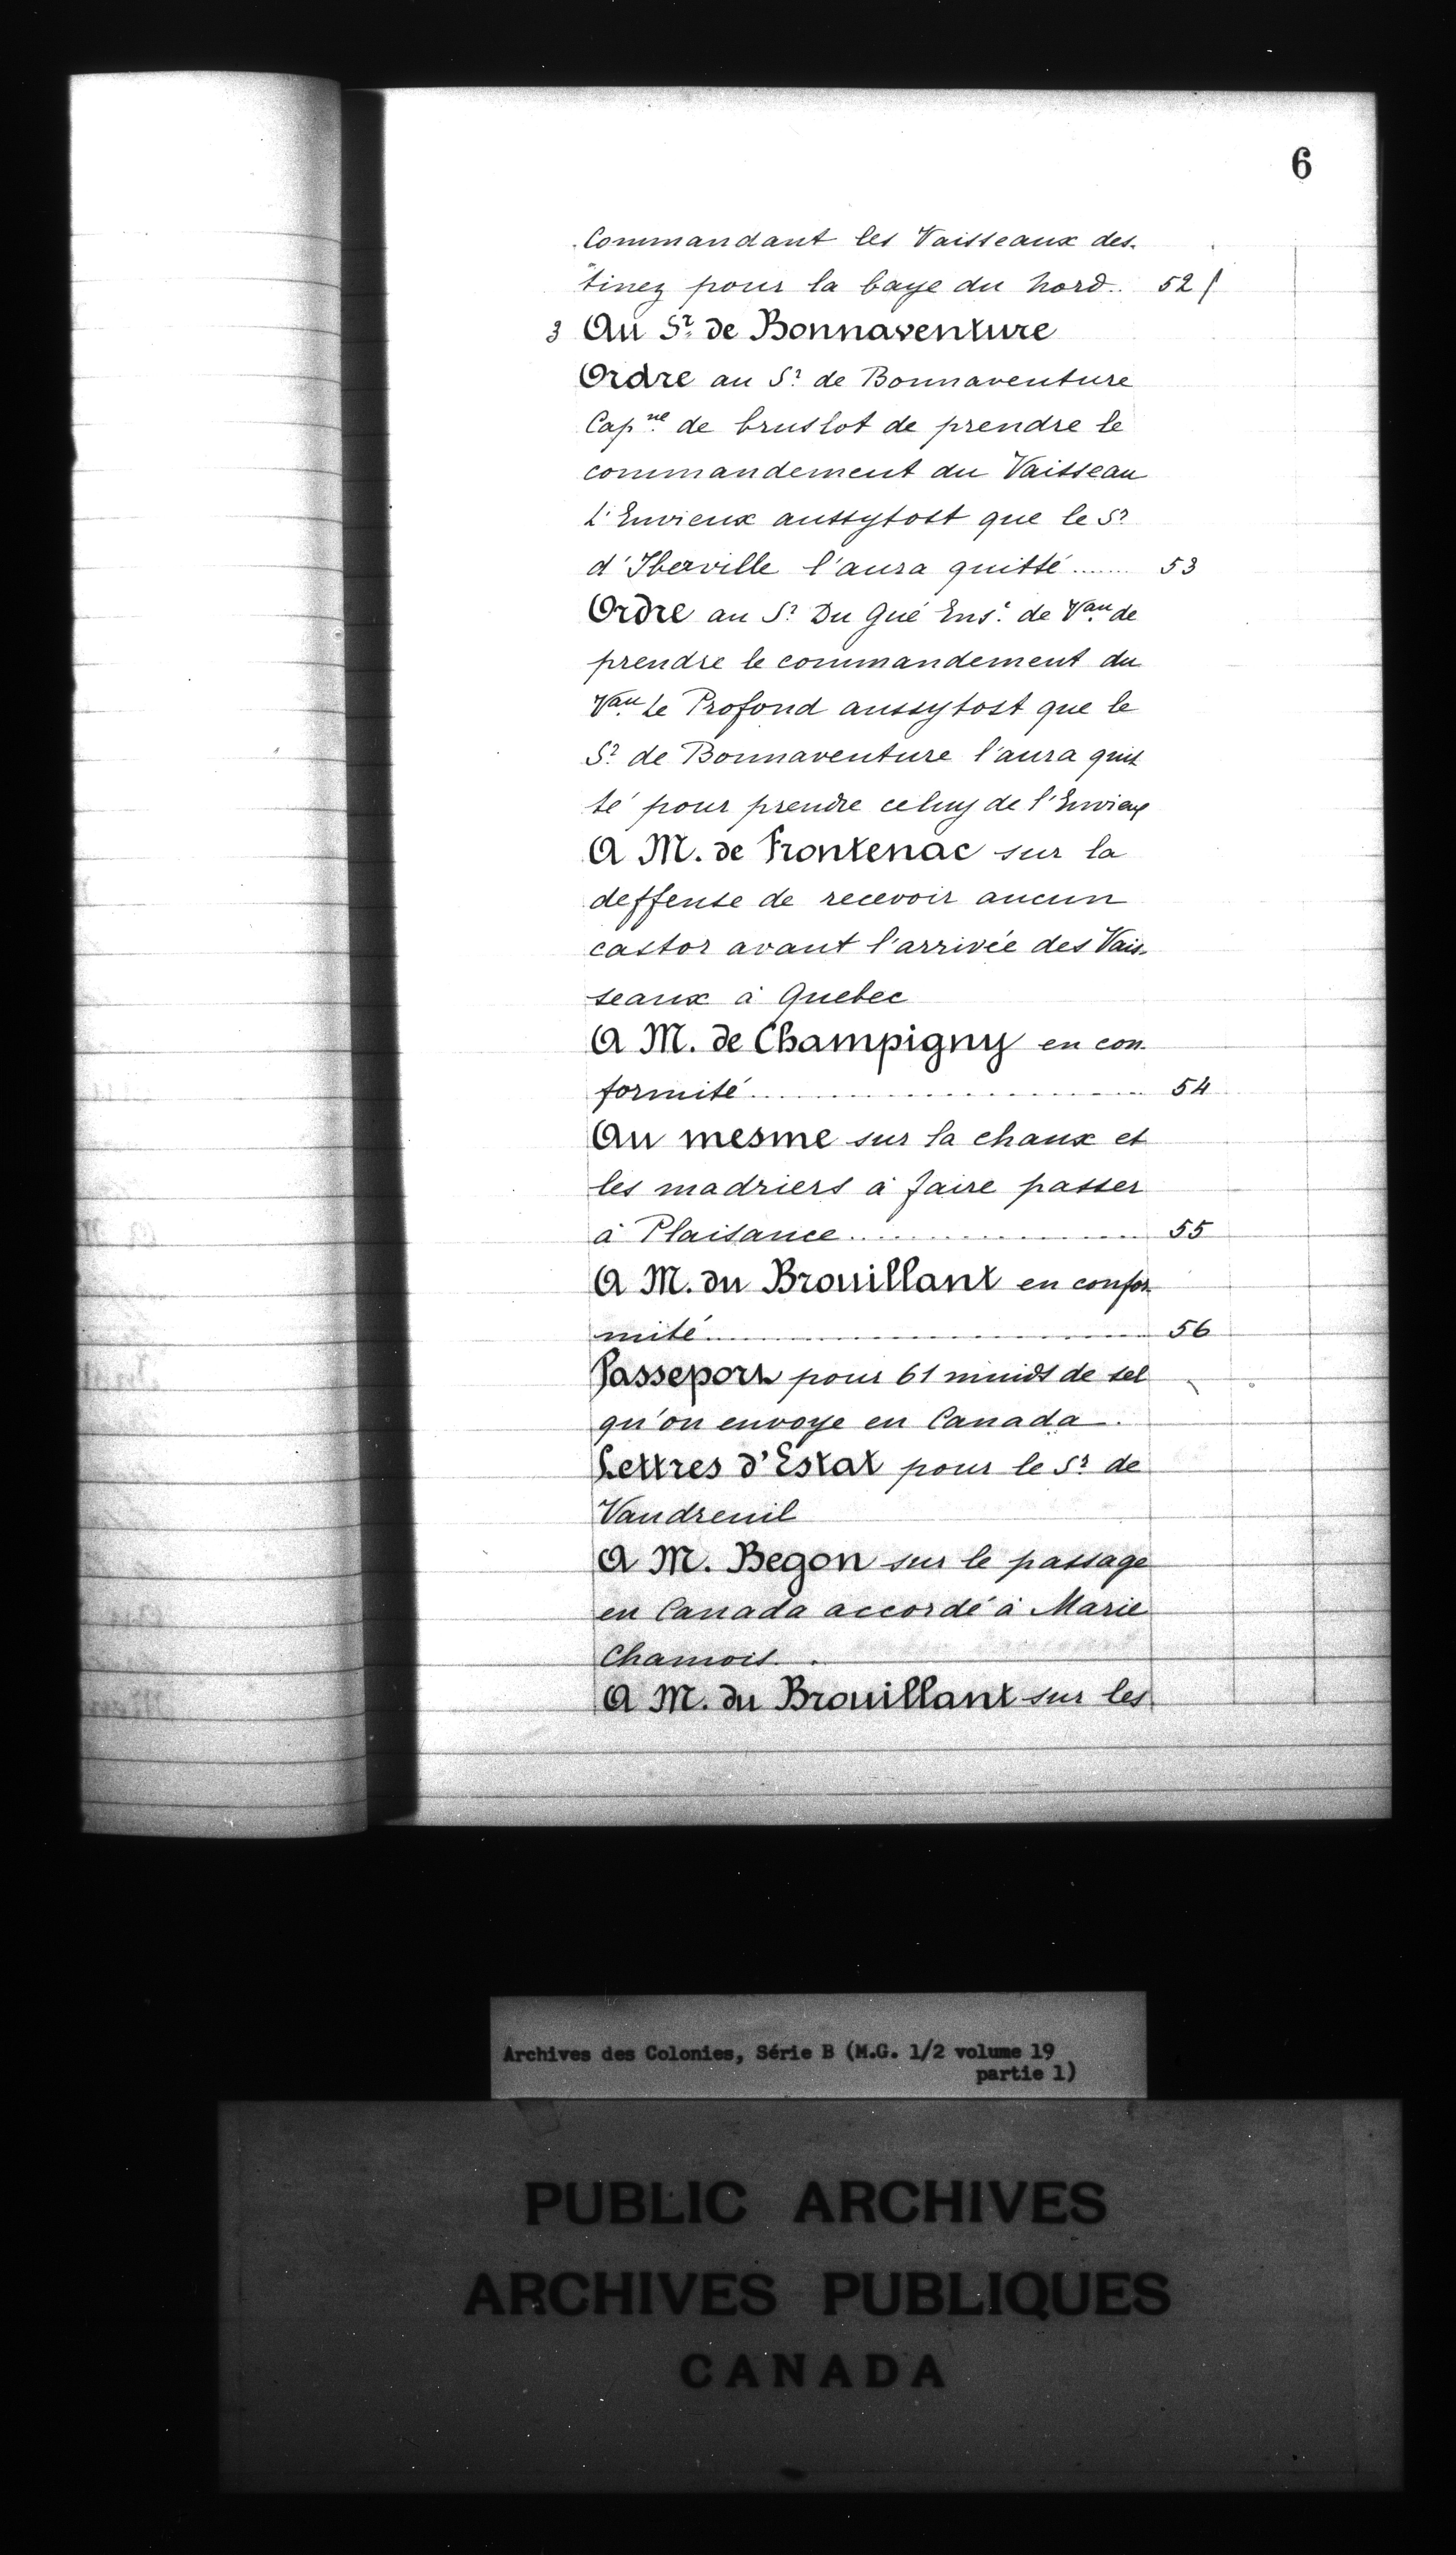 6
Commandant les Vaisseaux des-
tinez pour la baye du Nord.. 52
3 Au Sr. de Bonnaventure
Ordre au Sr. de Bonnaventure
Capne. de bruslot de prendre le
commandement du Vaisseau
L'Envieux aussytost que le Sr
d'Iberville l'aura quitté....... 53
Ordre au Sr. Du Gué Ense. de Vau. de
prendre le commandement du
Vau. Le Profond aussytost que le
Sr. de Bonnaventure l'aura quit
té pour prendre celuy de l'Envieux
A M. de Frontenac sur la
deffense de recevoir aucun
castor avant l'arrivée des Vais-
seaux à Quebec
A M. de Champigny en con-
formité.................... 54
Au mesme sur la chaux et
les madriers à faire passer
à Plaisance.................... 55
A M. du Brouillant en confor
mité.................... 56
Passeport pour 61 muids de sel
qu'on envoye en Canada.
Lettres d'Estat pour le Sr. de
Vaudreuil
A M. Begon sur le passage
en Canada accordé à Marie
Chamois.
A M. du Brouillant sur les
Archives des Colonies, Série B (M.G. 1/2 volume 19
partie 1)
PUBLIC ARCHIVES
ARCHIVES PUBLIQUES
CANADA